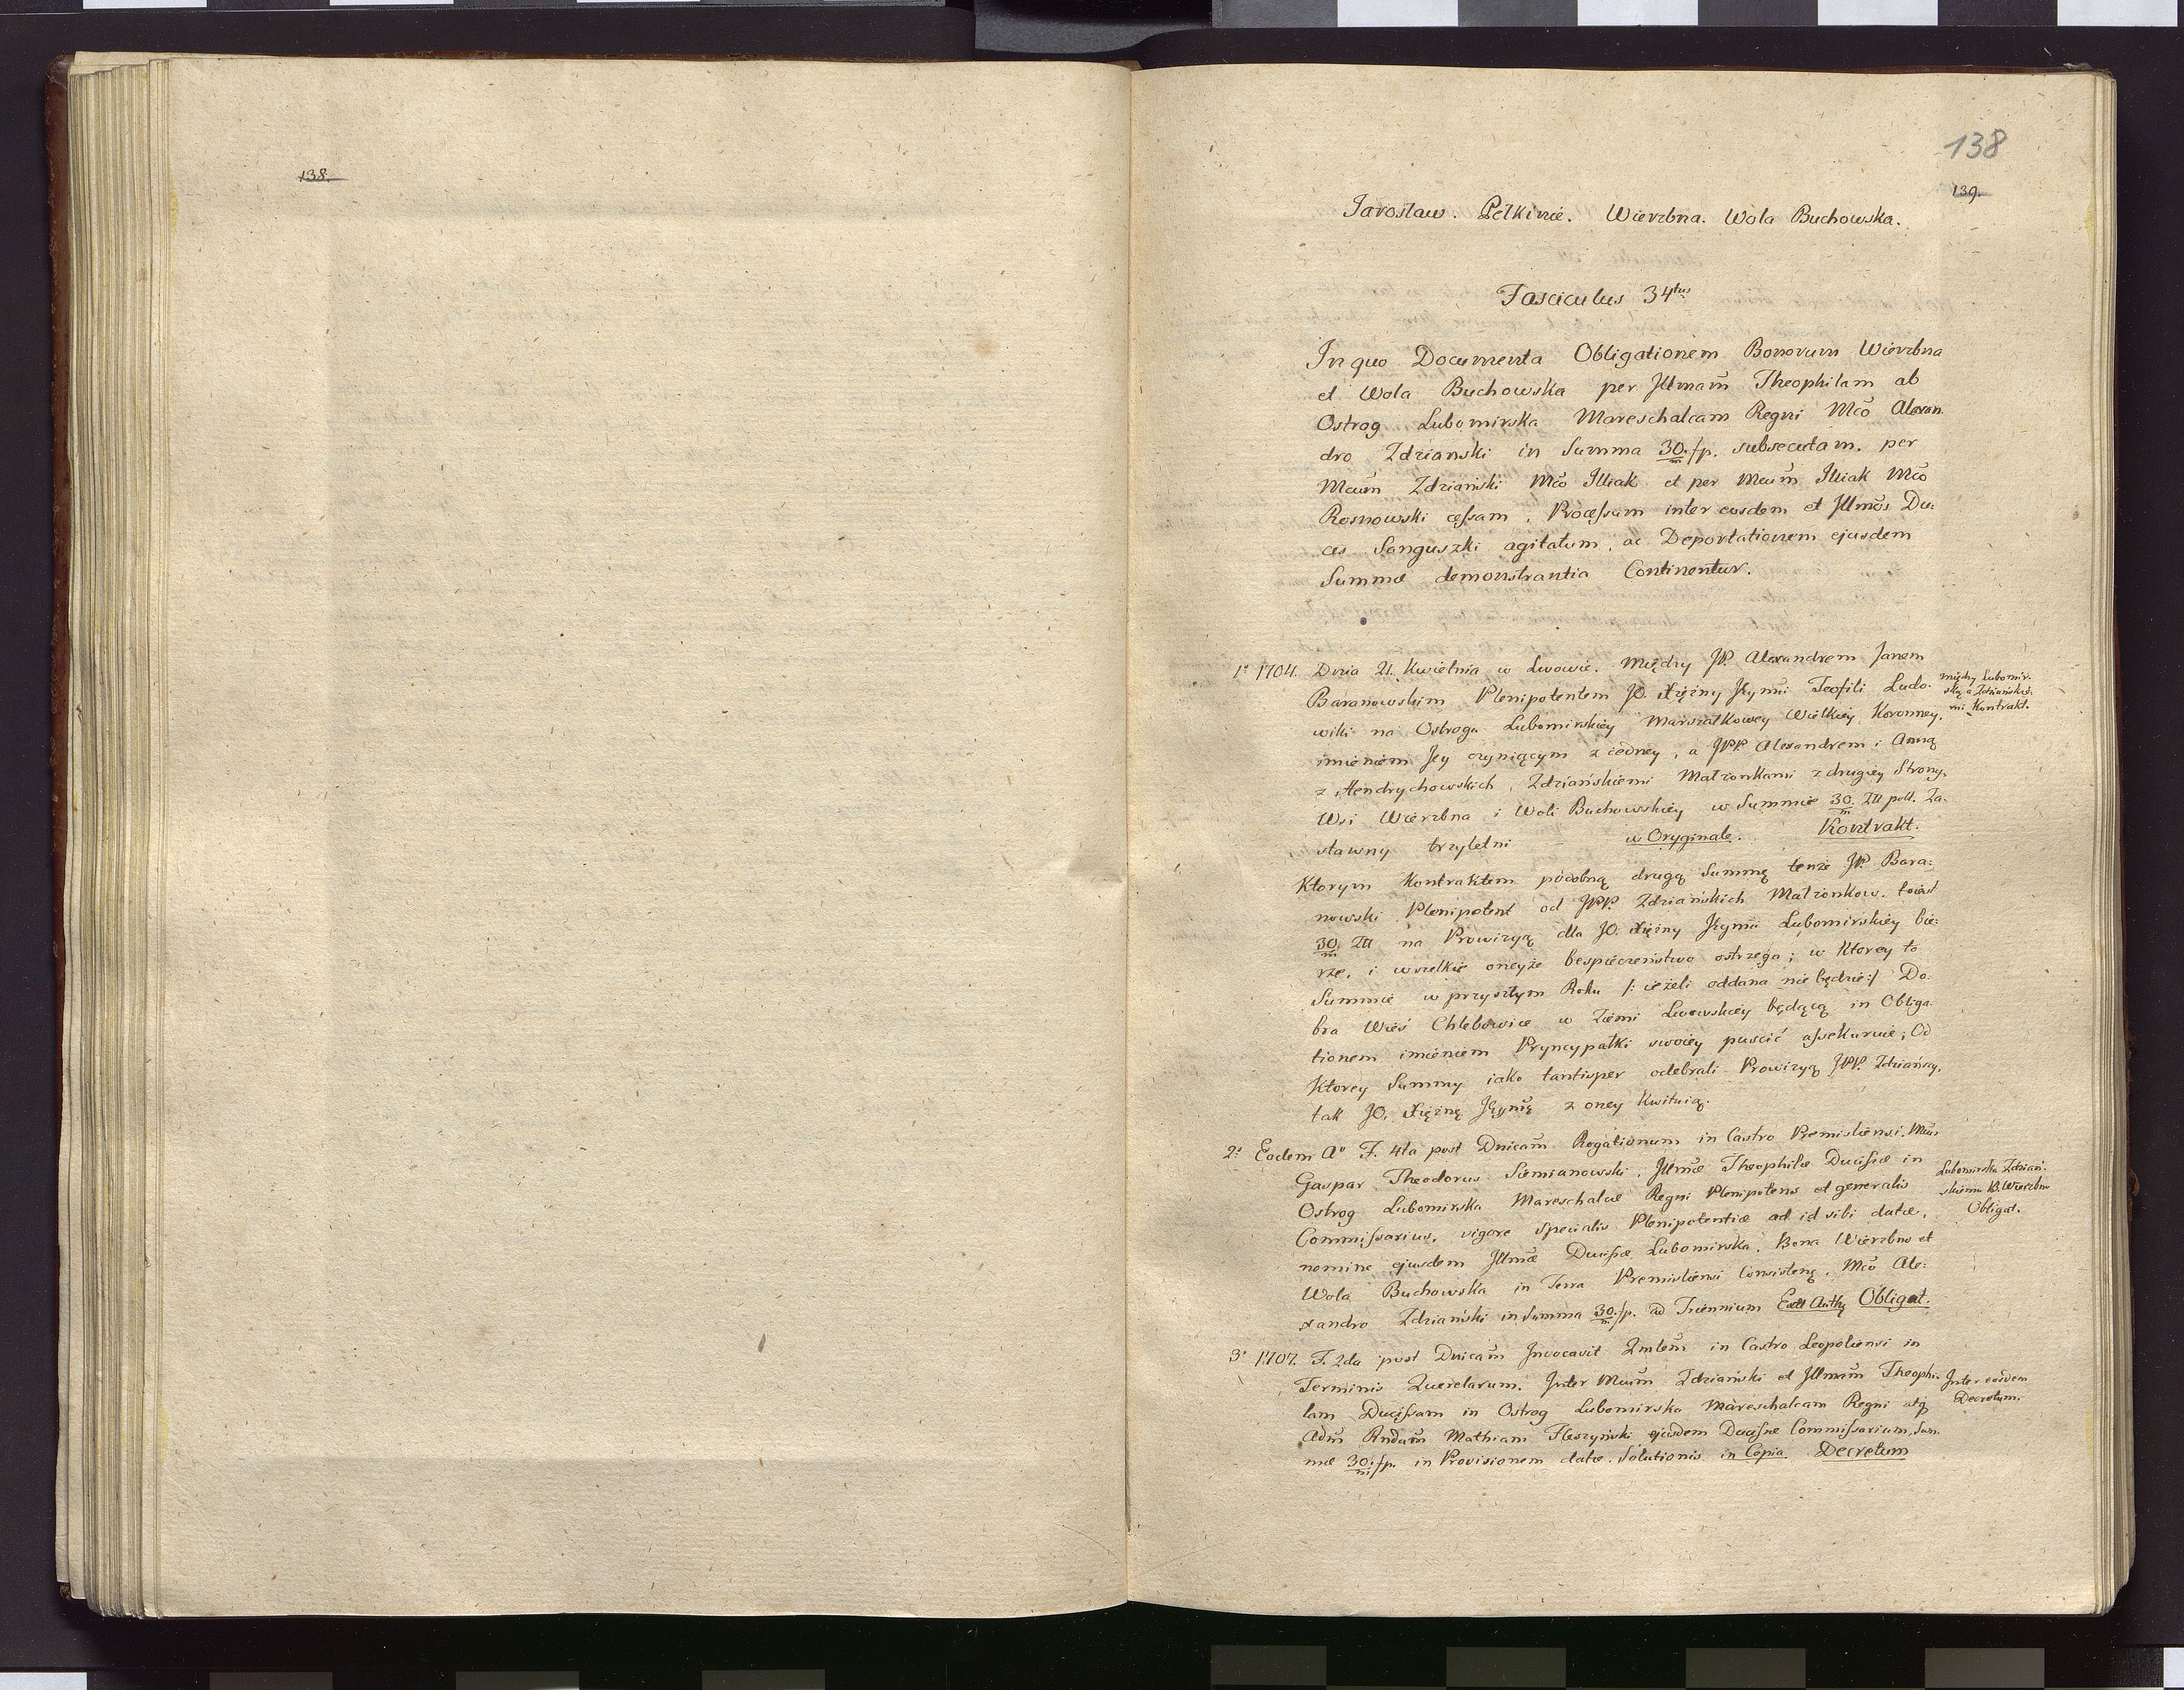 138.
138
139.
Jarosław. Pełkinie. Wierzbna. Wola Buchowska.
Fasciculus 34tus
In quo Documenta Obligationem Bonorum Wierzbna
et Wola Buchowska per Jllmam̄ Theophilam ab
Ostrog Lubomirska Mareschalcam Regni Mco̅ Alexan
dro Zdzianski in Summa 30/m fp. subsecutam. per
Mcum̄ Zdziański Mco̅ Illiak et per Mcum̄ Illiak Mco̅
Rosnowski cessam, Processum inter eosdem et Jllmos̄ Du:
ces Sanguszki agitatum, ac Deportationem ejusdem
Summæ demonstrantia Continentur.
1o 1704. Dnia 21. Kwietnia w Lwowie. Między JP. Alexandrem Janem
Baranowskim Plenipotentem JO. Xiężny Jeymći Teofili Ludo-
wiki na Ostrogu Lubomirskiey Marszałkowey Wielkiey Koronney,
imieniem Jey czyniącym z iedney, a JPP. Alexandrem i Anną
z Hendrychowskich, Zdziańskiemi Małżonkami z drugiey Strony,
Wsi Wierzbna i Woli Buchowskiey w Summie 30/m Złł poll. Za-
stawny trzyletni - w Oryginale. Kontrakt.
między Lubomir-
ską a Zdziański-
mi Kontrakt.
Ktorym Kontraktem podobną drugą Summę tenże JP. Bara:
nowski Plenipotent od JPP. Zdziańskich Małżonkow. toiest
30/m Złł na Prowizyą dla JO. Xiężny Jeymći Lubomirskiey bie:
rze, i wszelkie oneyże bespieczeństwo ostrzega; w Ktorey to
Summie w przyszłym Roku /: ieżeli oddana nie będzie:/ Do-
bra Wieś Chlebowice w Ziemi Lwowskiey będącą in Obliga-
tionem imieniem Pryncypałki swoiey puscić assekuruie; Od
Ktorey Summy iako tantisper odebrali Prowizyą JPP. Zdziańscy,
tak JO. Xiężnę Jeymć z oney Kwituią.
2o Eodem Ao F. 4ta post Dnicam̄ Rogationum in Castro Premisliensi. Mcus
Gaspar Theodorus Siemianowski, Jllmæ Theophilæ Ducissæ in
Ostrog Lubomirska Mareschalcæ Regni Plenipotens et generalis
Commissarius, vigore specialis Plenipotentiæ ad id sibi datæ,
nomine ejusdem Jllmæ Ducissæ Lubomirska, Bona Wierzbno et
Wola Buchowska in Terra Premisliensi Consisten̄, Mco̅ Ale:
xandro Zdziański in Summa 30/m fp. ad Triennium Extt Authy Obligat.
Lubomirska Zdziań-
skiemu B. Wierzbno
Obligat.
3o 1707. F. 2da post Dnicam̄ Invocavit Qmlem̄ in Castro Leopoliensi in
Terminis Querelarum. Inter Mcum̄ Zdziański et Jllmam̄ Theophi-
lam Ducissam in Ostrog Lubomirska Mareschalcam Regni atq
Adm̄ Rndum̄ Mathiam Fleszyński ejusdem Ducissæ Commissarium, Sum-
mæ 30/m fp. in Provisionem datæ. Solutionis in Copia. Decretum
Inter eosdem
Decretum.